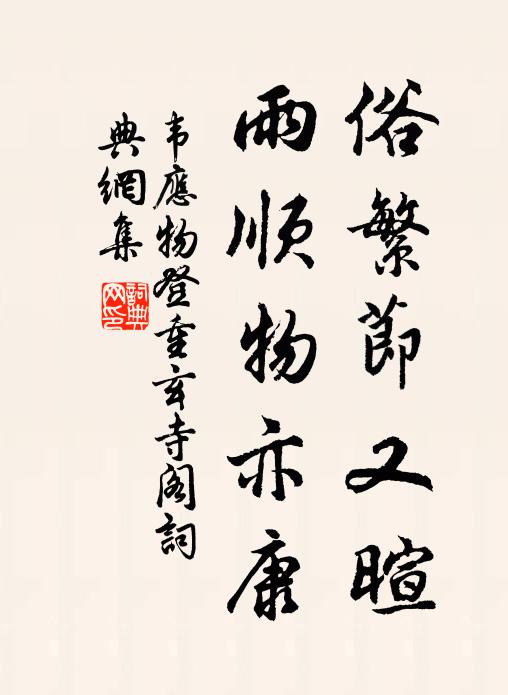 俗繁節又暄
雨順物亦康
韦應物登重玄寺阁詞
典網集
詞典
网印